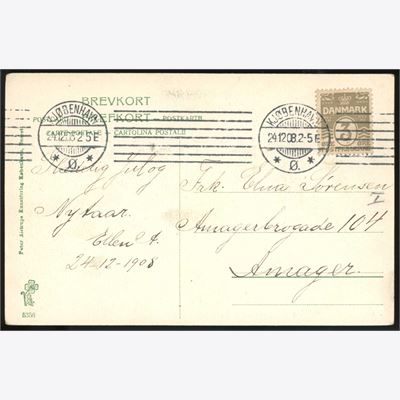 BREVKORT
POSTKARTE
CARTE POSTALE CARTOLINA POSTALE
KJØBENHAVN
24.12.08.2-5E
* Ø. *
KJØBENHAVN
24.12.08.2-5E
* Ø. *
DANMARK
3
Glædelig jul og
Nytaar.
Ellen A.
24-12-1908
Frk. Elna Sørensen
I
Amagerbrogade 104
Amager.
Peter Alstrups Kunstforlag Kjøbenhavn
5356